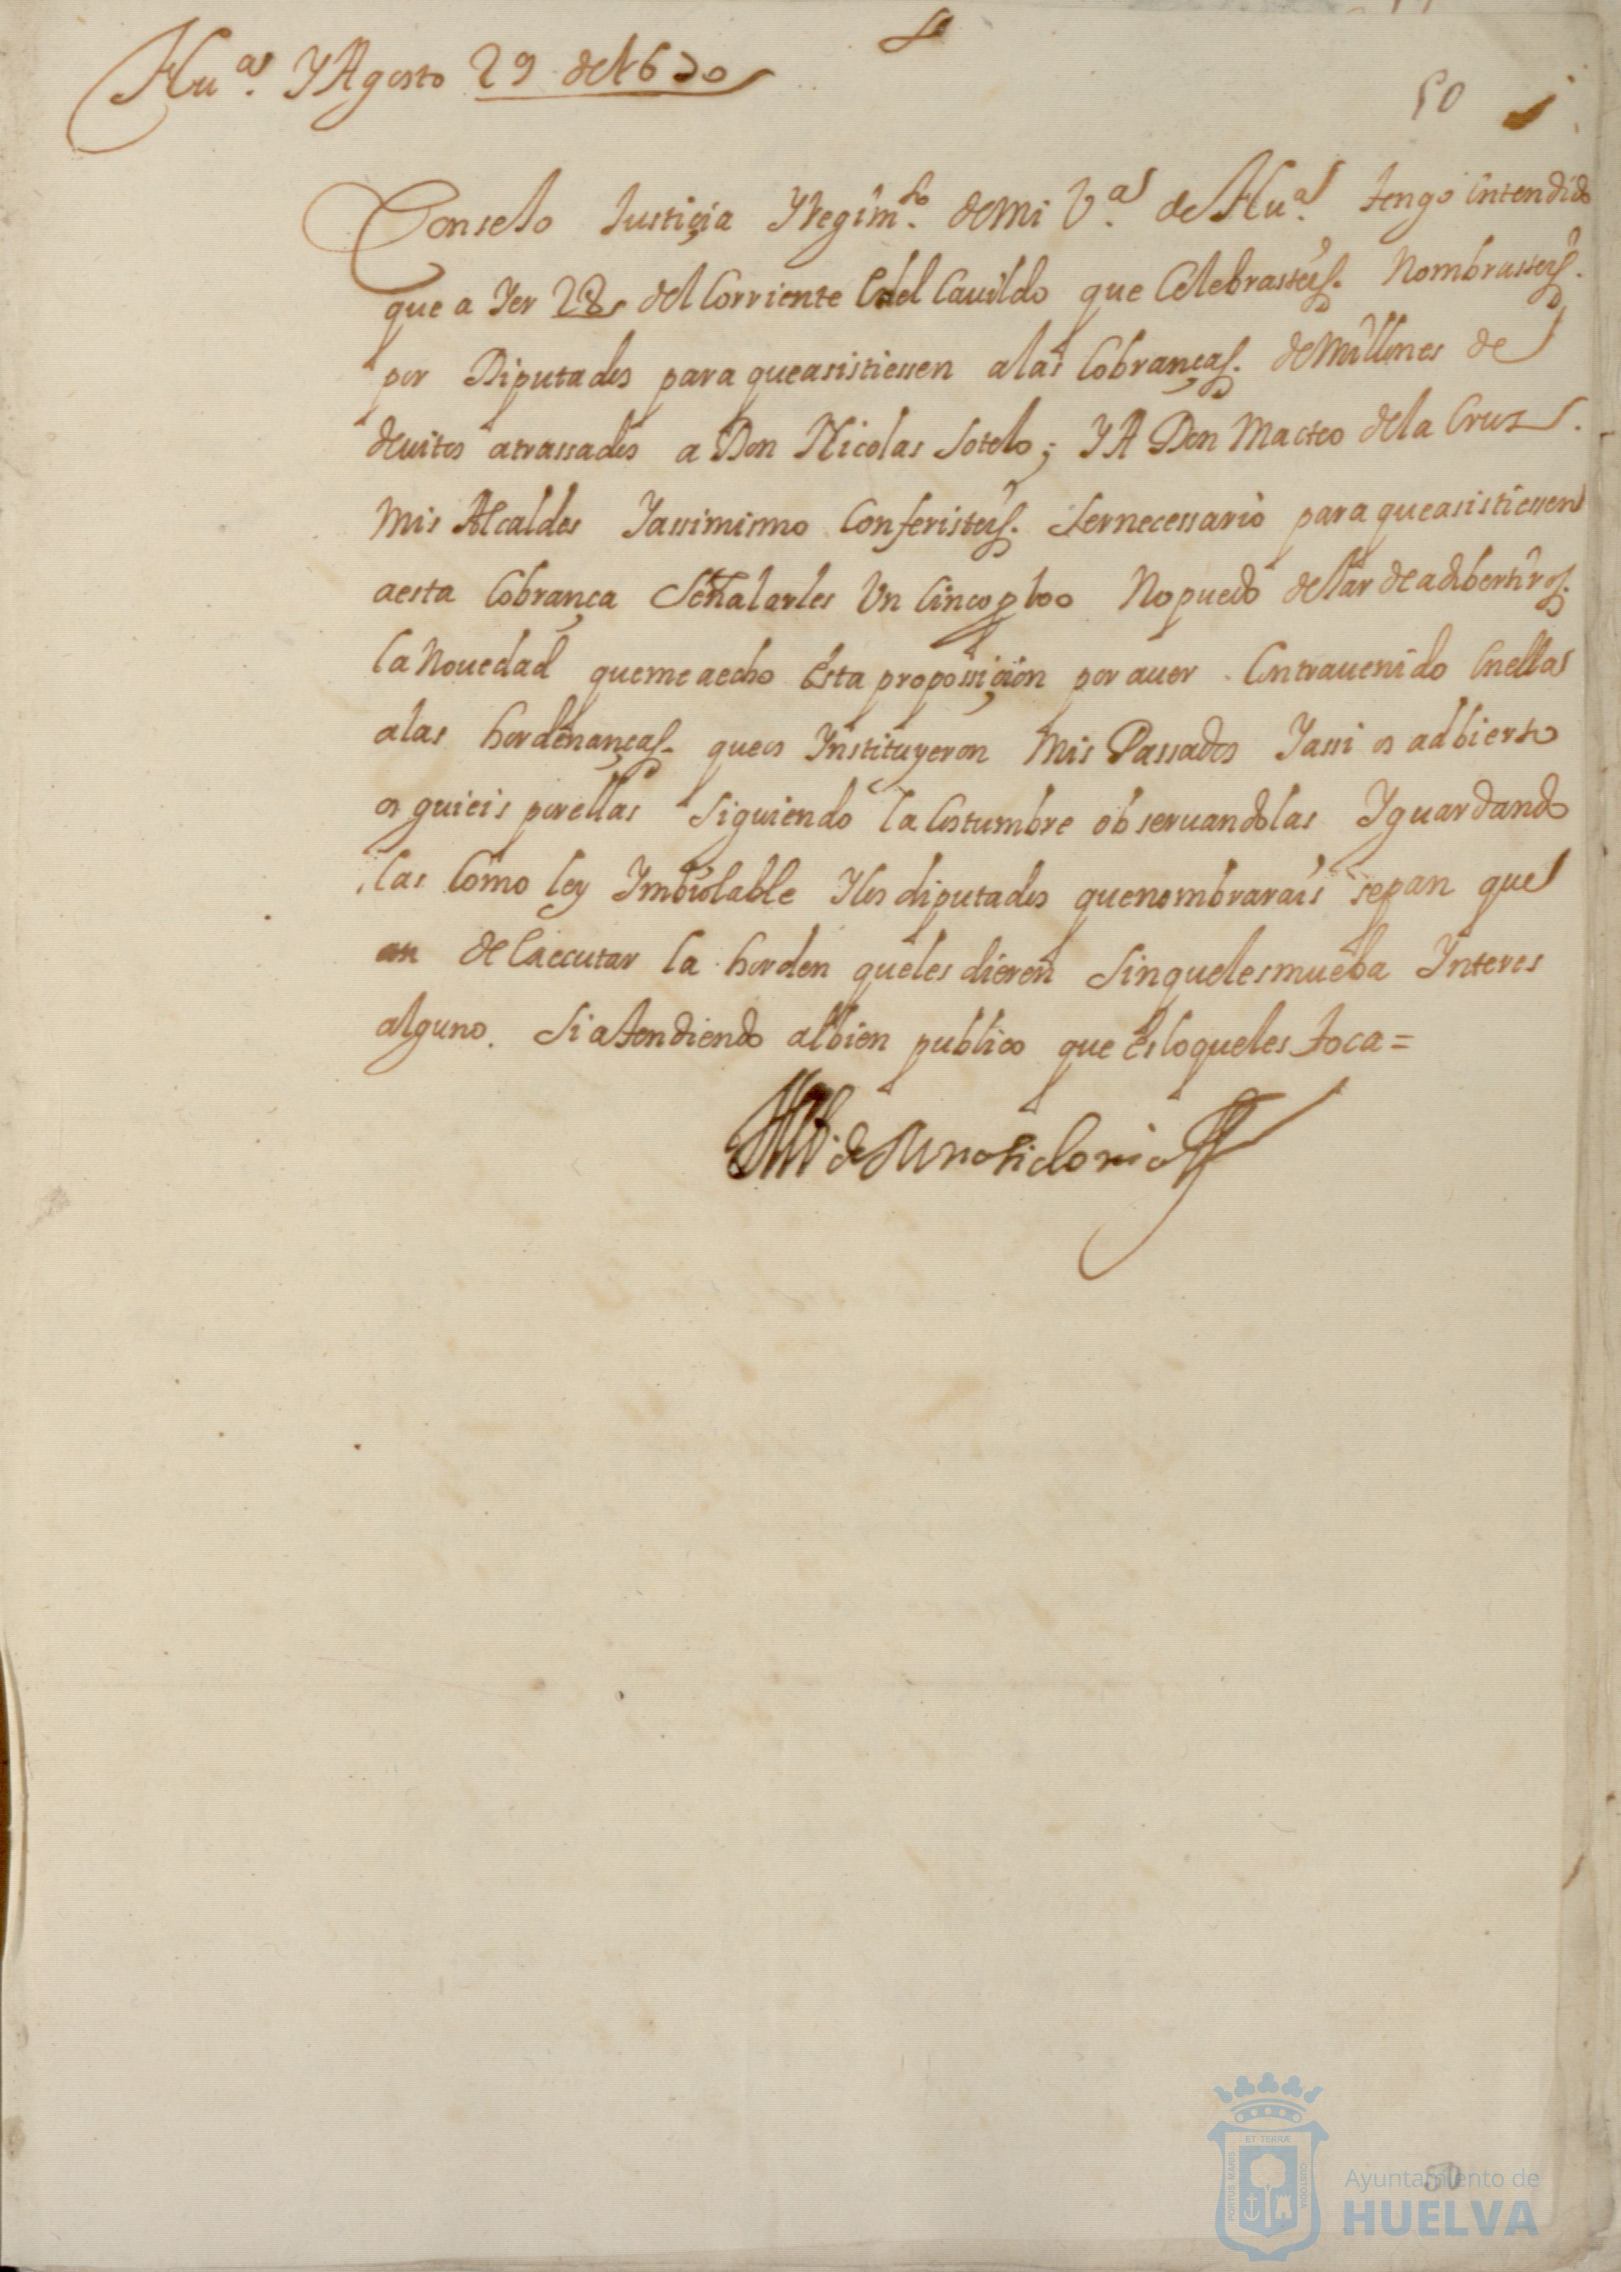 Hu.ª Y Agosto 29 de 1670
50
Consejo Justiçia Y Regim.to de mi V.ª de Hu.ª tengo intendido
que a Yer 28 del Corriente En el Cauildo que Celebrasteis. Nombrasteis.
por Diputados para que asistiessen a las Cobranças. de Millones de
deuitos atrassados a Don Nicolas Sotelo; Y A Don Matteo de la Cruz.
Mis Alcaldes Yassimismo Conferisteis. Ser necessario para que asistiessen
a esta Cobrança Señalarles Un Cinco p 100 No puedo dejar de adbertiros.
la Nouedad que me a echo Esta propossiçion por auer Contrauenido En ellas
a las hordenanças. que os Ynstituyeron Mis Passados Y assi os adbierto
os guieis por ellas Siguiendo la Costumbre obseruandolas Y guardando
las Como ley Ymbiolable Y los diputados que nombrarais sepan que
an de Ejecutar la horden que les dieren Sin que les mueba Ynteres
alguno. Si atendiendo al bien publico que Es lo que les toca =
de Medina Sidonia
PORTUS MARIS
ET TERRÆ
CUSTODIA
50
Ayuntamiento de
HUELVA